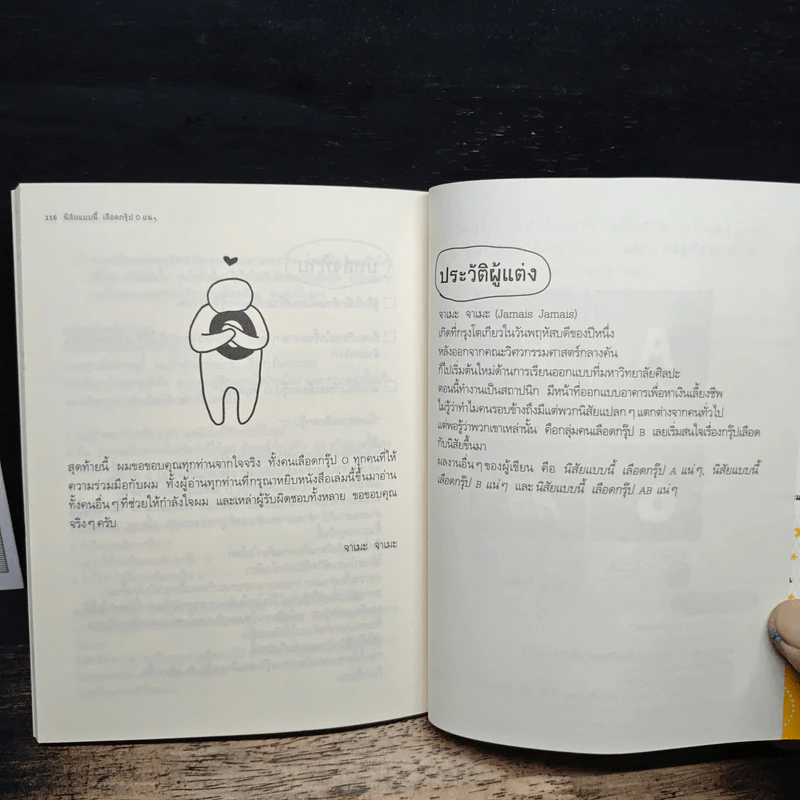 116 นิสัยแบบนี้ เลือดกรุ๊ป O แน่ๆ
สุดท้ายนี้ ผมขอขอบคุณทุกท่านจากใจจริง ทั้งคนเลือดกรุ๊ป O ทุกคนที่ให้
ความร่วมมือกับผม ทั้งผู้อ่านทุกท่านที่กรุณาหยิบหนังสือเล่มนี้ขึ้นมาอ่าน
ทั้งคนอื่นๆ ที่ช่วยให้กำลังใจผม และเหล่าผู้รับผิดชอบทั้งหลาย ขอขอบคุณ
จริงๆ ครับ
จาเมะ จาเมะ
ประวัติผู้แต่ง
จาเมะ จาเมะ (Jamais Jamais)
เกิดที่กรุงโตเกียวในวันพฤหัสบดีของปีหนึ่ง
หลังออกจากคณะวิศวกรรมศาสตร์กลางคัน
ก็ไปเริ่มต้นใหม่ด้านการเรียนออกแบบที่มหาวิทยาลัยศิลปะ
ตอนนี้ทำงานเป็นสถาปนิก มีหน้าที่ออกแบบอาคารเพื่อหาเงินเลี้ยงชีพ
ไม่รู้ว่าทำไมคนรอบข้างถึงมีแต่พวกนิสัยแปลกๆ แตกต่างจากคนทั่วไป
แต่พอรู้ว่าพวกเขาเหล่านั้น คือกลุ่มคนเลือดกรุ๊ป B เลยเริ่มสนใจเรื่องกรุ๊ปเลือด
กับนิสัยขึ้นมา
ผลงานอื่นๆ ของผู้เขียน คือ นิสัยแบบนี้ เลือดกรุ๊ป A แน่ๆ, นิสัยแบบนี้
เลือดกรุ๊ป B แน่ๆ และ นิสัยแบบนี้ เลือดกรุ๊ป AB แน่ๆ